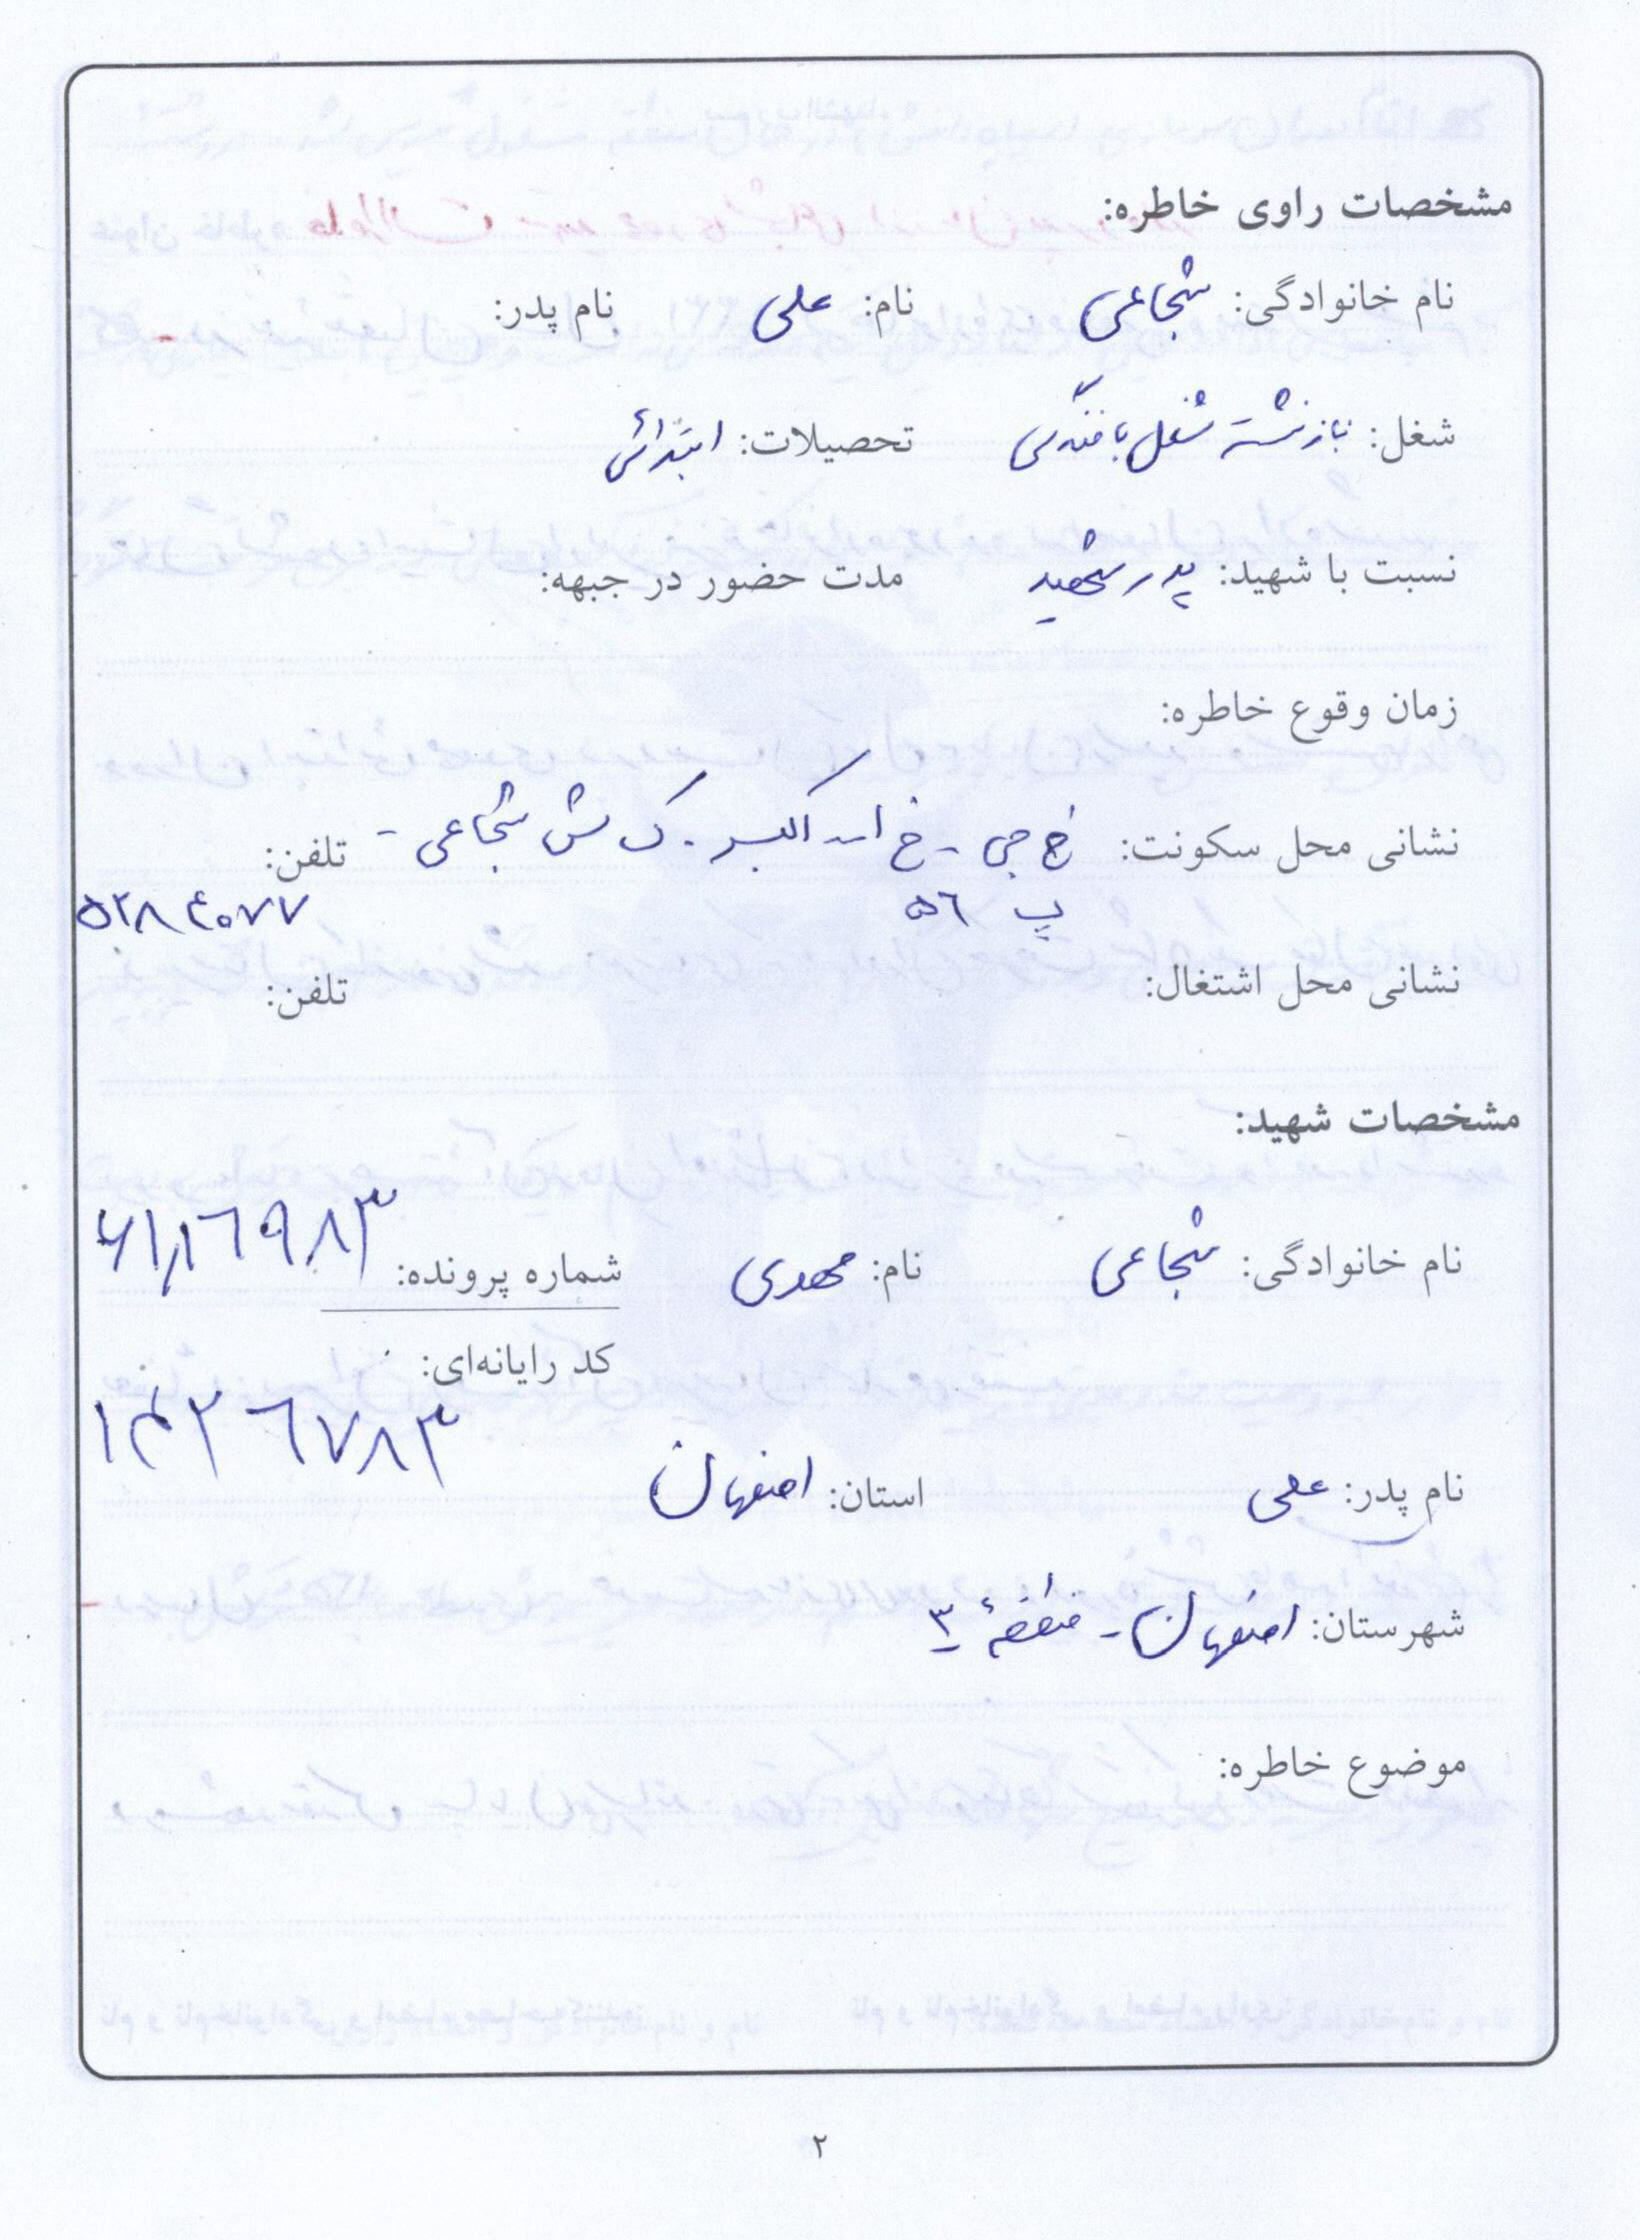 مشخصات راوی خاطره:
نام خانوادگی: شجاعی نام: علی نام پدر:
شغل: بازنشسته شغل بافندگی تحصیلات: ابتدائی
نسبت با شهید: پدر شهید مدت حضور در جبهه:
زمان وقوع خاطره:
نشانی محل سکونت: خ جی - خ الله اکبر - ک ش شجاعی - تلفن:
پ ۵۶ ۵۲۸۴۰۷۷
نشانی محل اشتغال: تلفن:
مشخصات شهید:
نام خانوادگی: شجاعی نام: مهدی شماره پرونده: ۶۱,۱۶۹۸۳
کد رایانه‌ای:
نام پدر: علی استان: اصفهان
شهرستان: اصفهان - منطقهٔ ۳
موضوع خاطره:
۲